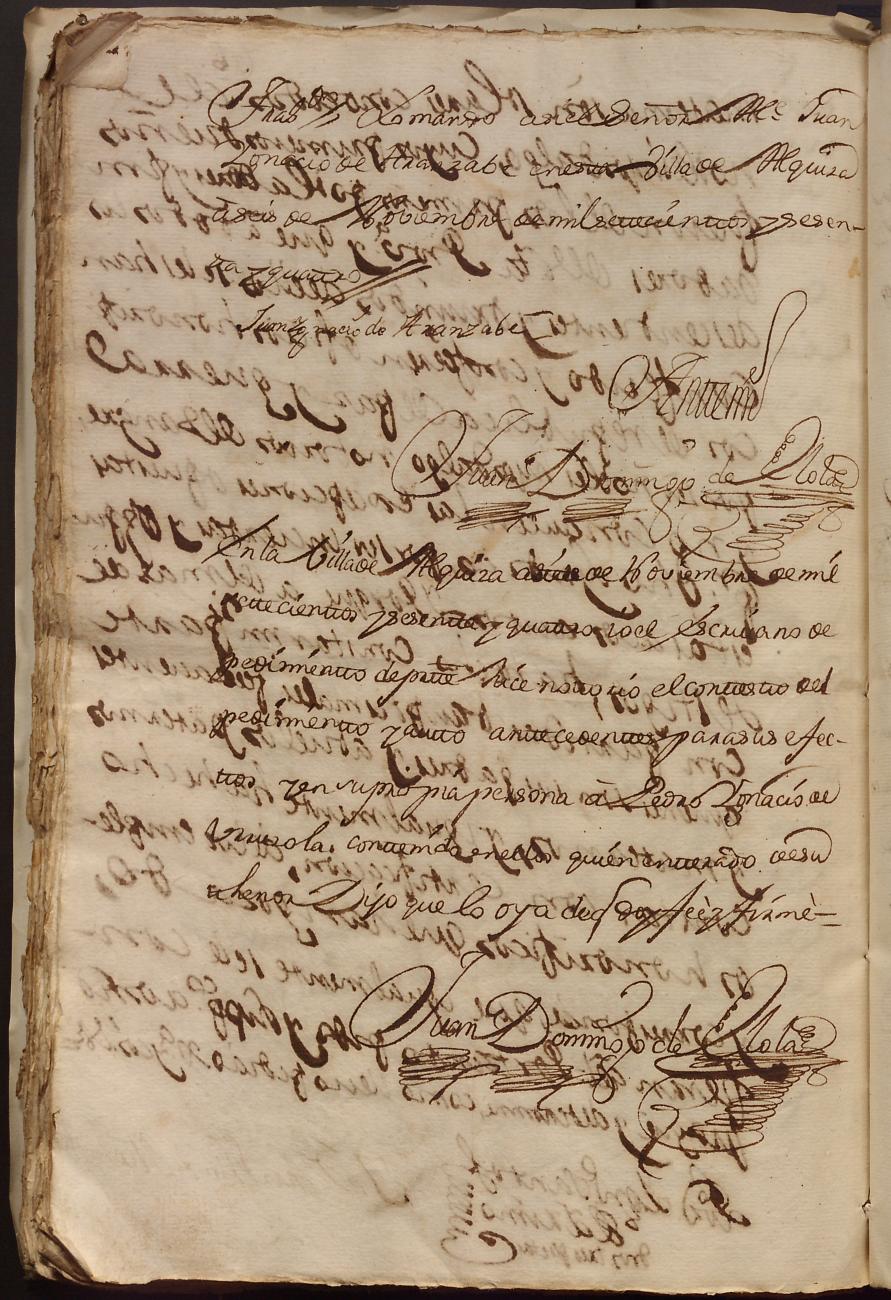 trab.º y lo mandó asi el Señor Alc.e Juan
Ignacio de Aranzabe enesta Villa de Alquiza
aseis de Noviembre de mil settecientos y sesen-
ta y quattro
Juan Ygnacio de Aranzabe
Antemi
Juan Domingo de Ollola
En la Villa de Alquiza a de Noviembre de mil
settecientos y sesenta y quattro yo el escrivano de
pedimiento de partte hice nottorio el contesto del
pedimento y autto anttecedenttes para sus efec-
ttos y en su propia persona á Pedro Ygnacio de
contenido en ellos quien entterado de su
thenor Dijo que lo oya de q doy fee y firmè
Juan Domingo de Ollola